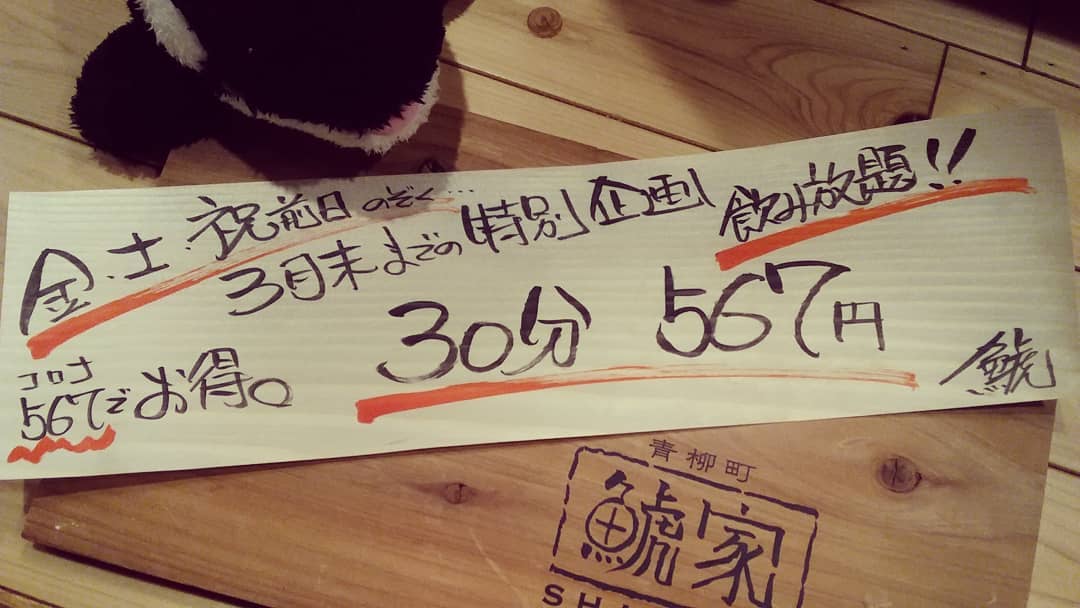 金・土・祝前日のぞく…
3月末までの特別企画 飲み放題!!
30分 567円
コロナ
567でお得。
鯱
青柳町
鯱家
SHA